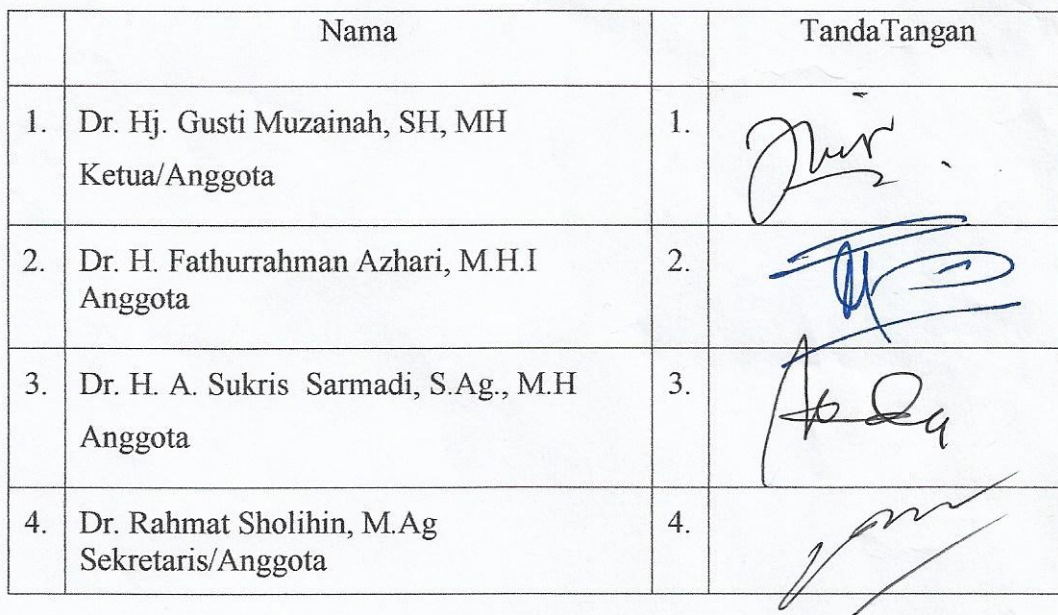 Nama TandaTangan
1. Dr. Hj. Gusti Muzainah, SH, MH 1.
Ketua/Anggota
2. Dr. H. Fathurrahman Azhari, M.H.I 2.
Anggota
3. Dr. H. A. Sukris Sarmadi, S.Ag., M.H 3.
Anggota
4. Dr. Rahmat Sholihin, M.Ag 4.
Sekretaris/Anggota